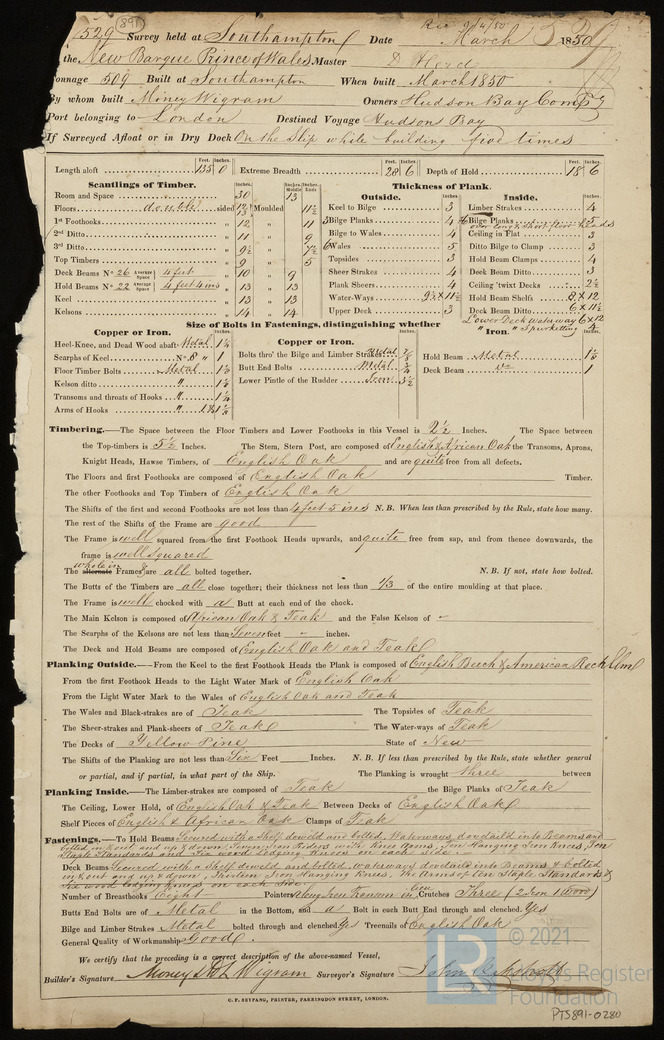 891
Rec 9/4/50
529 Survey held at Southampton Date March 5 1850
the New Barque Prince of Wales Master D Herd
onnage 509 Built at Southampton When built March 1850
By whom built Money Wigram Owners Hudson Bay Compy
Port belonging to London Destined Voyage Hudson Bay
If Surveyed Afloat or in Dry Dock On the Slip while building five times
Feet. Inches. Feet. Inches. Feet. Inches.
Length aloft 135 0 Extreme Breadth 28 6 Depth of Hold 18 6
Scantlings of Timber.
Inches. Inches. Middle Inches. Ends
Room and Space 30 13
Floors double sided 12/13 Moulded 11½
1st Foothooks " 12 " 11
2nd Ditto " 11 " 9
3rd Ditto " 9½ " 7½
Top Timbers " 9 " 5
Deck Beams No 26 Average Space 4 feet " 10 " 9
Hold Beams No 22 Average Space 4 feet 4 ins " 13 " 13
Keel " 13 " 13
Kelsons " 14 " 14
Thickness of Plank.
Outside. Inches.
Keel to Bilge 3
Bilge Planks 4
Bilge to Wales 4
Wales 5
Topsides 3
Sheer Strakes 4
Plank Sheers 4
Water-Ways 9½ x 11½
Upper Deck 3
Inside. Inches.
Limber Strakes 4
Bilge Planks 5
over long & short floor heads
Ceiling in Flat 3
Ditto Bilge to Clamp 3
Hold Beam Clamps 4
Deck Beam Ditto 3
Ceiling 'twixt Decks 2½
Hold Beam Shelfs 8 x 12
Deck Beam Ditto 6 x 11½
Lower Deck waterway 6 x 12
" " Spirketting 4
Size of Bolts in Fastenings, distinguishing whether
Copper or Iron. Copper or Iron. Iron.
Heel-Knee, and Dead Wood abaft Metal 1¼
Scarphs of Keel No. 8 " 1
Floor Timber Bolts Metal 1⅛
Kelson ditto " 1⅛
Transoms and throats of Hooks " 1¼
Arms of Hooks "
Bolts thro' the Bilge and Limber Strakes Metal ⅞
Butt End Bolts Metal ¾
Lower Pintle of the Rudder Iron 3½
Hold Beam Metal 1⅛
Deck Beam Do 1
Timbering.—The Space between the Floor Timbers and Lower Foothooks in this Vessel is 2½ Inches. The Space between
the Top-timbers is 5½ Inches. The Stem, Stern Post, are composed of English & African Oak the Transoms, Aprons,
Knight Heads, Hawse Timbers, of English Oak and are quite free from all defects.
The Floors and first Foothooks are composed of English Oak Timber.
The other Foothooks and Top Timbers of English Oak
The Shifts of the first and second Foothooks are not less than 4 feet 5 ins N. B. When less than prescribed by the Rule, state how many.
The rest of the Shifts of the Frame are good
The Frame is well squared from the first Foothook Heads upwards, and quite free from sap, and from thence downwards, the
frame is well squared
The alternate whole in Frames & are all bolted together. N. B. If not, state how bolted.
The Butts of the Timbers are all close together; their thickness not less than 1/3 of the entire moulding at that place.
The Frame is well chocked with a Butt at each end of the chock.
The Main Kelson is composed of African Oak & Teak and the False Kelson of -
The Scarphs of the Kelsons are not less than Seven feet - inches.
The Deck and Hold Beams are composed of English Oak and Teak
Planking Outside.—From the Keel to the first Foothook Heads the Plank is composed of English Beech & American Rock Elm
From the first Foothook Heads to the Light Water Mark of English Oak
From the Light Water Mark to the Wales of English Oak and Teak
The Wales and Black-strakes are of Teak The Topsides of Teak
The Sheer-strakes and Plank-sheers of Teak The Water-ways of Teak
The Decks of Yellow Pine State of New
The Shifts of the Planking are not less than Six Feet Inches. N. B. If less than prescribed by the Rule, state whether general
or partial, and if partial, in what part of the Ship. The Planking is wrought three between
Planking Inside.—The Limber-strakes are composed of Teak the Bilge Planks of Teak
The Ceiling, Lower Hold, of English Oak & Teak Between Decks of English Oak
Shelf Pieces of English & African Oak Clamps of Teak
Fastenings.—To Hold Beams Secured with a Shelf, doweld and bolted, Waterways, dovetaild into Beams and
bolted in & out and up & down. Seven Iron Riders on the Knee Arms, Ten Hanging Iron Knees, Ten
Staple Standards and Six wood Lodging Knees on each side.
Deck Beams Secured with a shelf doweld and bolted, waterways dovetaild into Beams & bolted
in & out and up & down, Thirteen Iron Hanging Knees, the Arms of ten Staple Standards &
Six wood lodging Knees on each side.
Number of Breasthooks Eight Pointers Crutches Three (2 Iron 1 Wood)
Butts End Bolts are of Metal in the Bottom, and a Bolt in each Butt End through and clenched. Yes
Bilge and Limber Strakes Metal bolted through and clenched Yes Treenails of English Oak
General Quality of Workmanship Good.
We certify that the preceding is a correct description of the above-named Vessel,
Builder's Signature Money Wigram Surveyor's Signature
C. F. SEYFANG, PRINTER, FARRINGDON STREET, LONDON.
© 2021
Lloyd's Register
Foundation
PTS891-0280